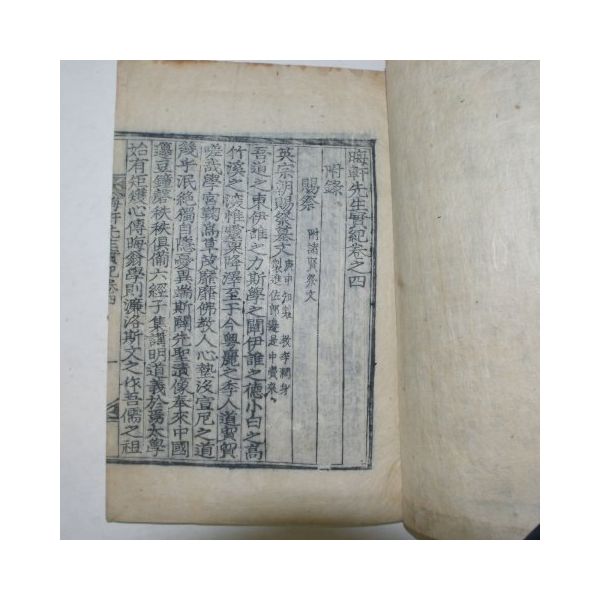 晦軒先生實紀卷之四
附錄
賜祭 附諸賢祭文
英宗朝賜祭祭文
吾道之東伊誰之力斯學之闡伊誰之德小白之高
竹溪之淸惟靈東降澤至于今粤麗之季人道貿貿
嗟哉學宮鞠爲草茂靡靡佛敎人心孰淑宣尼之道
幾乎泯絶獨自隱憂異端斯闢先聖遺像奉來中國
籩豆鐘磬秩秩俱備六經子集講明道義於焉太學
始有矩矱心傳晦翁學則濂洛斯文之作吾儒之祖
晦軒先生實紀卷四